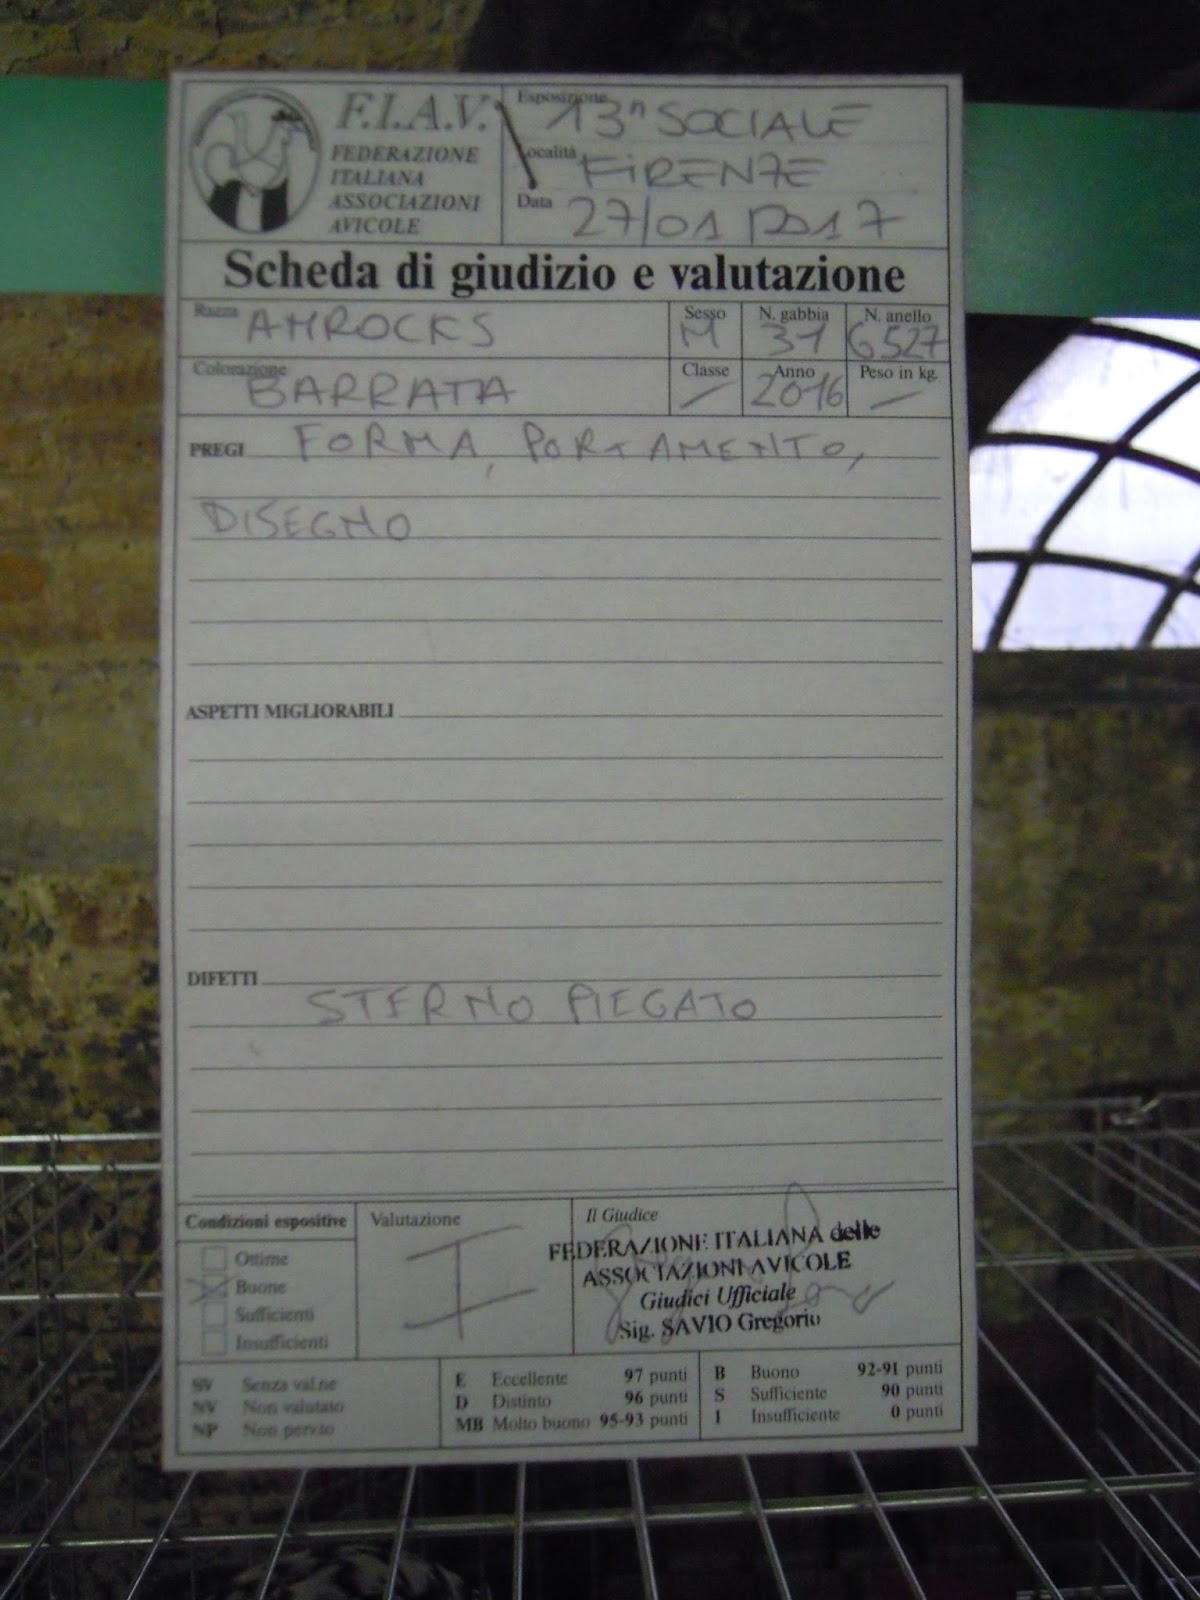 F.I.A.V.
FEDERAZIONE
ITALIANA
ASSOCIAZIONI
AVICOLE
Esposizione 13ª SOCIALE
Località FIRENZE
Data 27/01/2017
Scheda di giudizio e valutazione
Razza AMROCKS
Sesso M
N. gabbia 31
N. anello G527
Colorazione BARRATA
Classe /
Anno 2016
Peso in kg. /
PREGI FORMA, PORTAMENTO,
DISEGNO
ASPETTI MIGLIORABILI
DIFETTI
STERNO PIEGATO
Condizioni espositive
Ottime
Buone
Sufficienti
Insufficienti
Valutazione
I
Il Giudice
FEDERAZIONE ITALIANA delle
ASSOCIAZIONI AVICOLE
Giudici Ufficiale
Sig. SAVIO Gregorio
SV Senza val.ne
NV Non valutato
NP Non pervio
E Eccellente 97 punti
D Distinto 96 punti
MB Molto buono 95-93 punti
B Buono 92-91 punti
S Sufficiente 90 punti
I Insufficiente 0 punti